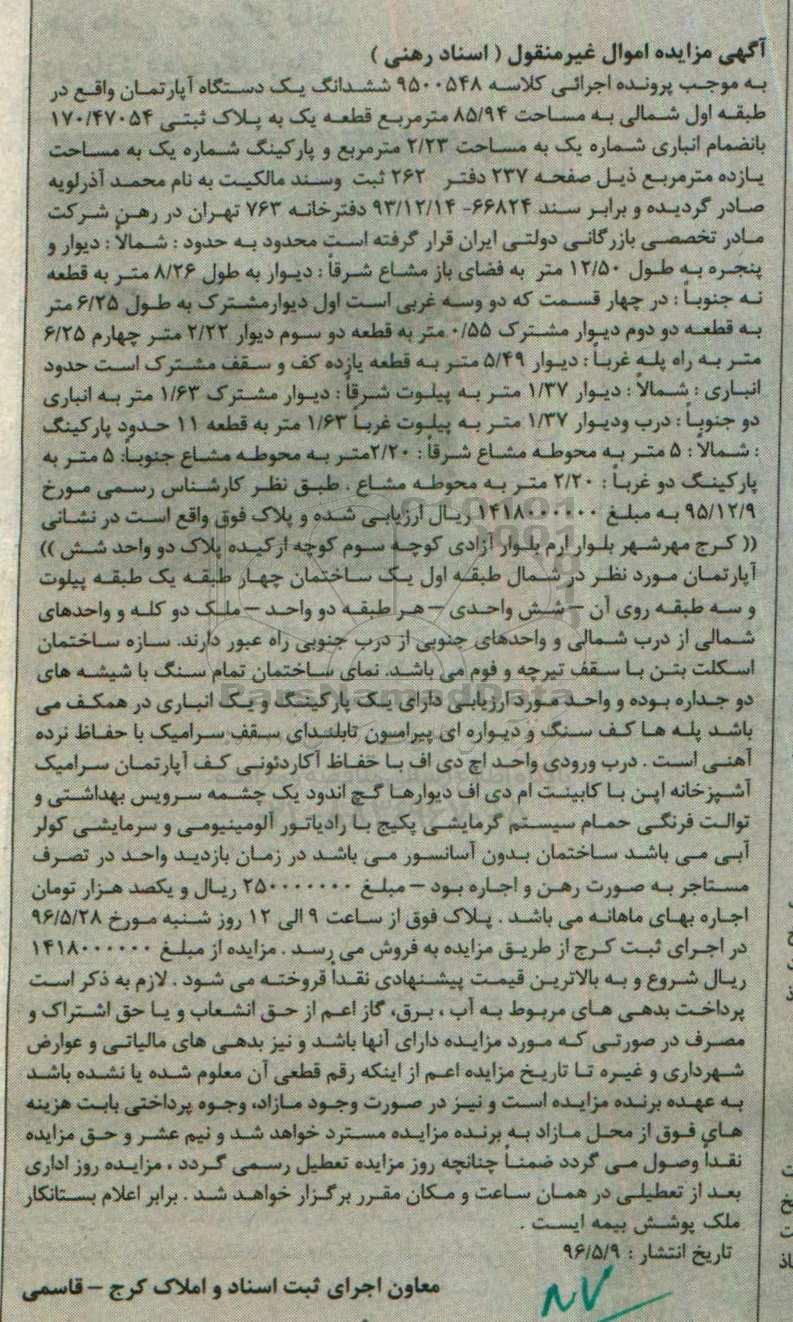 آگهی مزایده اموال غیرمنقول ( اسناد رهنی )
به موجب پرونده اجرائی کلاسه ۹۵۰۰۵۴۸ ششدانگ یک دستگاه آپارتمان واقع در
طبقه اول شمالی به مساحت ۸۵/۹۴ مترمربع قطعه یک به پلاک ثبتی ۱۷۰/۴۷۰۵۴
بانضمام انباری شماره یک به مساحت ۲/۲۳ مترمربع و پارکینگ شماره یک به مساحت
یازده مترمربع ذیل صفحه ۲۳۷ دفتر ۲۶۲ ثبت وسند مالکیت به نام محمد آذرلویه
صادر گردیده و برابر سند ۶۶۸۲۴- ۹۳/۱۲/۱۴ دفترخانه ۷۶۳ تهران در رهن شرکت
مادر تخصصی بازرگانی دولتی ایران قرار گرفته است محدود به حدود : شمالاً : دیوار و
پنجره به طول ۱۲/۵۰ متر به فضای باز مشاع شرقاً : دیوار به طول ۸/۲۶ متر به قطعه
نه جنوباً : در چهار قسمت که دو وسه غربی است اول دیوارمشترک به طول ۶/۲۵ متر
به قطعه دو دوم دیوار مشترک ۰/۵۵ متر به قطعه دو سوم دیوار ۲/۲۲ متر چهارم ۶/۲۵
متر به راه پله غرباً : دیوار ۵/۴۹ متر به قطعه یازده کف و سقف مشترک است حدود
انباری : شمالاً : دیوار ۱/۳۷ متر به پیلوت شرقاً : دیوار مشترک ۱/۶۳ متر به انباری
دو جنوباً : درب ودیوار ۱/۳۷ متر به پیلوت غرباً ۱/۶۳ متر به قطعه ۱۱ حدود پارکینگ
: شمالاً : ۵ متر به محوطه مشاع شرقاً : ۲/۲۰متر به محوطه مشاع جنوباً: ۵ متر به
پارکینگ دو غرباً : ۲/۲۰ متر به محوطه مشاع . طبق نظر کارشناس رسمی مورخ
۹۵/۱۲/۹ به مبلغ ۱۴۱۸۰۰۰۰۰۰ ریال ارزیابی شده و پلاک فوق واقع است در نشانی
(( کرج مهرشهر بلوار ارم بلوار آزادی کوچه سوم کوچه ارکیده پلاک دو واحد شش ))
آپارتمان مورد نظر در شمال طبقه اول یک ساختمان چهار طبقه یک طبقه پیلوت
و سه طبقه روی آن – شش واحدی – هر طبقه دو واحد – ملک دو کله و واحدهای
شمالی از درب شمالی و واحدهای جنوبی از درب جنوبی راه عبور دارند. سازه ساختمان
اسکلت بتن با سقف تیرچه و فوم می باشد. نمای ساختمان تمام سنگ با شیشه های
دو جداره بوده و واحد مورد ارزیابی دارای یک پارکینگ و یک انباری در همکف می
باشد پله ها کف سنگ و دیواره ای پیرامون تابلندای سقف سرامیک با حفاظ نرده
آهنی است . درب ورودی واحد اچ دی اف با حفاظ آکاردئونی کف آپارتمان سرامیک
آشپزخانه اپن با کابینت ام دی اف دیوارها گچ اندود یک چشمه سرویس بهداشتی و
توالت فرنگی حمام سیستم گرمایشی پکیج با رادیاتور آلومینیومی و سرمایشی کولر
آبی می باشد ساختمان بدون آسانسور می باشد در زمان بازدید واحد در تصرف
مستاجر به صورت رهن و اجاره بود – مبلغ ۲۵۰۰۰۰۰۰۰ ریال و یکصد هزار تومان
اجاره بهای ماهانه می باشد . پلاک فوق از ساعت ۹ الی ۱۲ روز شنبه مورخ ۹۶/۵/۲۸
در اجرای ثبت کرج از طریق مزایده به فروش می رسد . مزایده از مبلغ ۱۴۱۸۰۰۰۰۰۰
ریال شروع و به بالاترین قیمت پیشنهادی نقداً فروخته می شود . لازم به ذکر است
پرداخت بدهی های مربوط به آب ، برق، گاز اعم از حق انشعاب و یا حق اشتراک و
مصرف در صورتی که مورد مزایده دارای آنها باشد و نیز بدهی های مالیاتی و عوارض
شهرداری و غیره تا تاریخ مزایده اعم از اینکه رقم قطعی آن معلوم شده یا نشده باشد
به عهده برنده مزایده است و نیز در صورت وجود مازاد، وجوه پرداختی بابت هزینه
های فوق از محل مازاد به برنده مزایده مسترد خواهد شد و نیم عشر و حق مزایده
نقداً وصول می گردد ضمناً چنانچه روز مزایده تعطیل رسمی گردد ، مزایده روز اداری
بعد از تعطیلی در همان ساعت و مکان مقرر برگزار خواهد شد . برابر اعلام بستانکار
ملک پوشش بیمه ایست .
تاریخ انتشار : ۹۶/۵/۹
معاون اجرای ثبت اسناد و املاک کرج – قاسمی